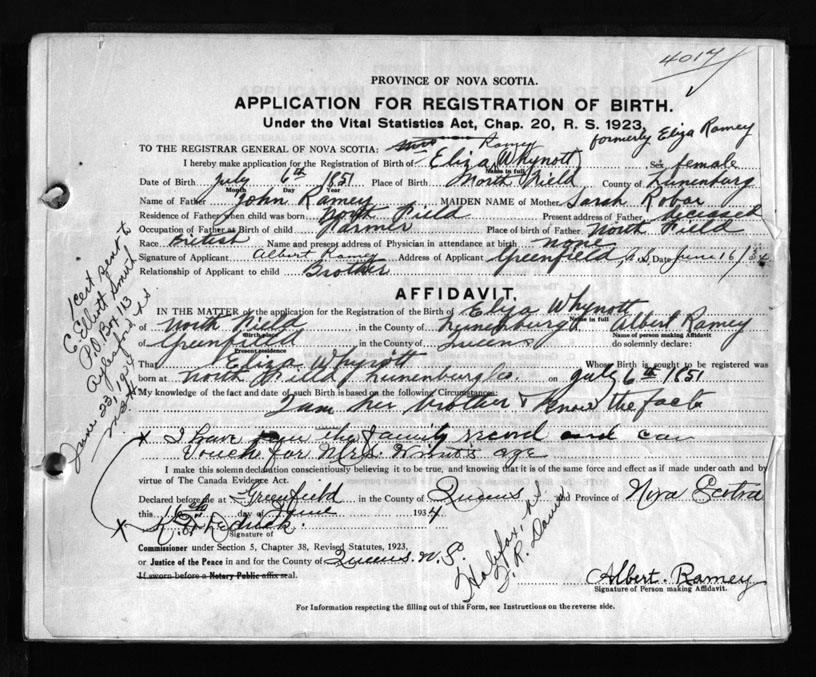 4017
PROVINCE OF NOVA SCOTIA.
APPLICATION FOR REGISTRATION OF BIRTH.
Under the Vital Statistics Act, Chap. 20, R. S. 1923,
formerly Eliza Ramey
TO THE REGISTRAR GENERAL OF NOVA SCOTIA: Ramey
I hereby make application for the Registration of Birth of Eliza Whynott Sex female
Name in full
Date of Birth July 6th 1851 Place of Birth North Field County of Lunenburg
Month Day Year
Name of Father John Ramey MAIDEN NAME of Mother Sarah Robar
Residence of Father when child was born North Field Present address of Father deceased
Occupation of Father at Birth of child Farmer Place of birth of Father North Field
Race British Name and present address of Physician in attendance at birth none
Signature of Applicant Albert Ramey Address of Applicant Greenfield, N.S. Date June 16/34
Relationship of Applicant to child Brother
AFFIDAVIT.
IN THE MATTER of the application for the Registration of the Birth of Eliza Whynott
Name in full
of North Field in the County of Lunenburg I Albert Ramey
Birth place Name of person making Affidavit
of Greenfield in the County of Queens do solemnly declare:
Present residence
That Eliza Whynott Whose Birth is sought to be registered was
born at North Field Lunenburg Co. on July 6th 1851
My knowledge of the fact and date of such Birth is based on the following Circumstances:
I am her brother & know the fact
x I have seen the family record and can
vouch for Mrs. Whynott's age
I make this solemn declaration conscientiously believing it to be true, and knowing that it is of the same force and effect as if made under oath and by
virtue of The Canada Evidence Act.
Declared before me at Greenfield in the County of Queens and Province of Nova Scotia
this 16th day of June 1934
x
Signature of
Commissioner under Section 5, Chapter 38, Revised Statutes, 1923,
or Justice of the Peace in and for the County of Queens. N.S.
If sworn before a Notary Public affix seal.
Halifax, N.S.
Albert. Ramey
Signature of Person making Affidavit.
For Information respecting the filling out of this Form, see Instructions on the reverse side.
1 cert sent to
C. Elliott Smith
P.O Box 113
Aylesford N.S
June 23, 1934